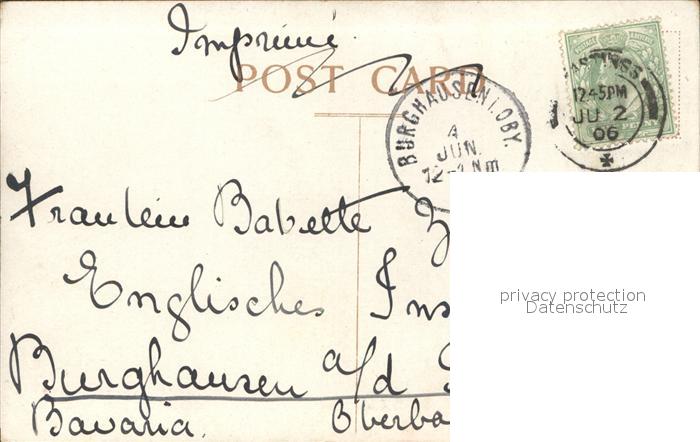 Imprimé.
POST CARD
BURGHAUSEN I.OBY.
4
JUN.
12-1 Nm
HASTINGS
12.45PM
JU 2
06
PENNY
Fräulein Babette
Englisches Ins
Burghausen a/d
Bavaria. Oberba
privacy protection
Datenschutz